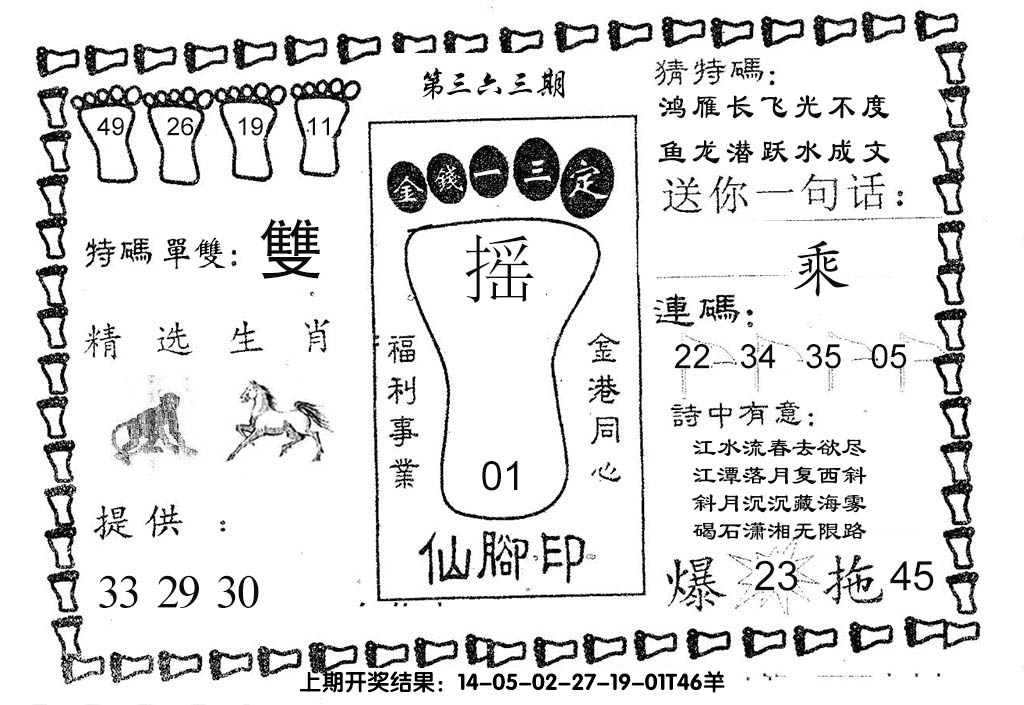 第三六三期
49 26 19 11
特碼單雙：雙
精选生肖
提供：
33 29 30
金錢一三定
摇
福利事業
金港同心
01
仙腳印
猜特碼：
鸿雁长飞光不度
鱼龙潜跃水成文
送你一句话：
乘
連碼：
22 34 35 05
詩中有意：
江水流春去欲尽
江潭落月复西斜
斜月沉沉藏海雾
碣石潇湘无限路
爆 23 拖 45
上期开奖结果：14-05-02-27-19-01T46羊